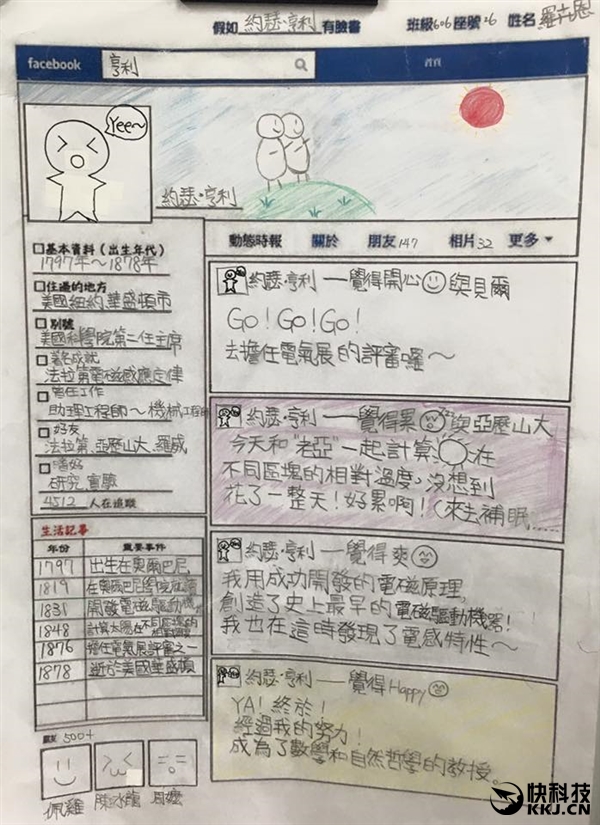 假如 約瑟·亨利 有臉書 班級606座號26 姓名
facebook 亨利 首頁
Yee~
約瑟·亨利
動態時報 關於 朋友147 相片32 更多
基本資料(出生年代)
1797年~1878年
住過的地方
美國紐約、華盛頓市
別號
美國科學院第二任主席
著名成就
法拉第電磁感應定律
曾任工作
助理工程師~機械工程師
好友
法拉第、亞歷山大、羅威
嗜好
研究、實驗
4512 人在追蹤
生活記事
年份 重要事件
1797 出生在奧爾巴尼
1819 在奧爾巴尼學院
1831 開發電磁驅動機
1848 計算太陽在不同區塊的
1876 擔任電氣展評審之一
1878 逝於美國華盛頓
500+
約瑟·亨利 —覺得開心 與貝爾
Go! Go! Go!
去擔任電氣展的評審囉~
約瑟·亨利 —覺得累 與亞歷山大
今天和"老亞"一起計算 在
不同區塊的相對溫度,沒想到
花了一整天!好累啊!(來去補眠......
約瑟·亨利 —覺得爽
我用成功開發的電磁原理,
創造了史上最早的電磁驅動機器!
我也在這時發現了電感特性~
約瑟·亨利 —覺得Happy
YA!終於!
經過我的努力!
成為了數學和自然哲學的教授。
快科技
KKJ.CN